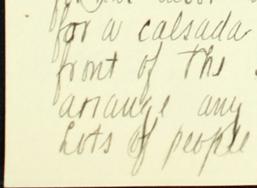 for a calsada
front of the
arrange any
Lots of people